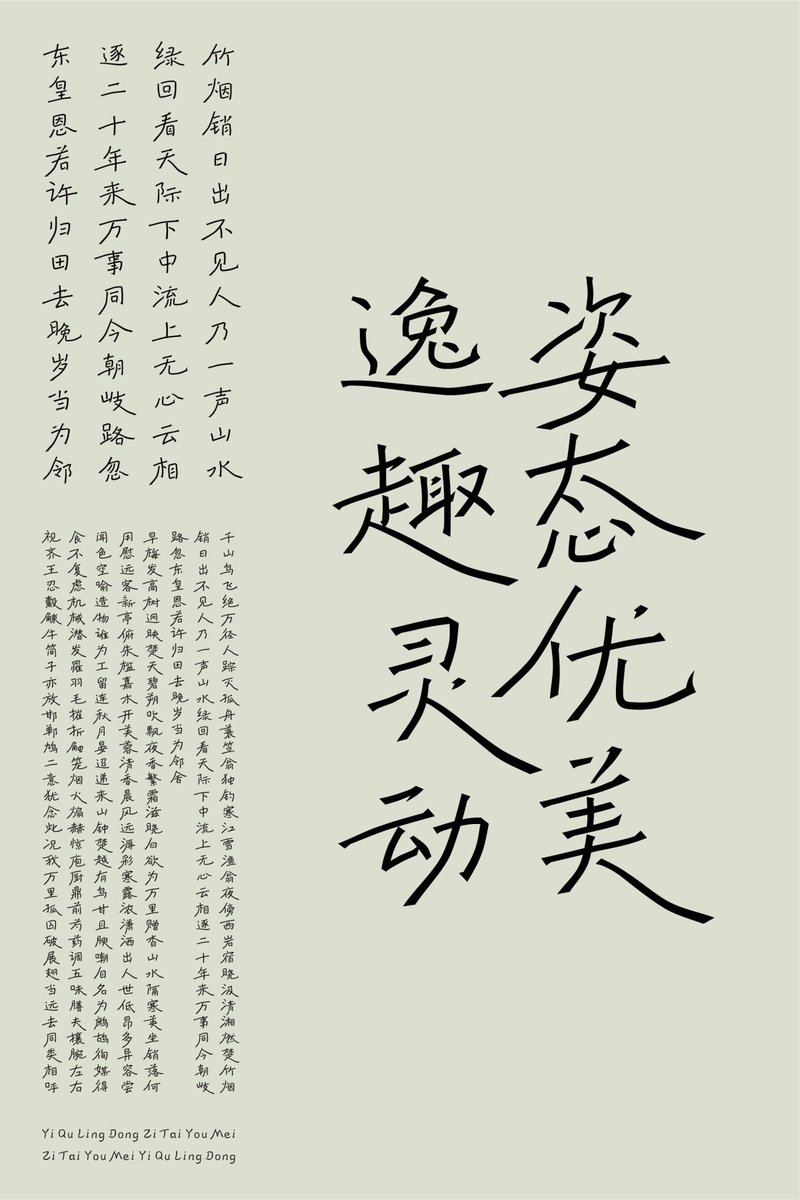 姿态优美
逸趣灵动
竹烟销日出不见人乃一声山水
绿回看天际下中流上无心云相
逐二十年来万事同今朝岐路忽
东皇恩若许归田去晚岁当为邻
千山鸟飞绝万径人踪灭孤舟蓑笠翁独钓寒江雪渔翁夜傍西岩宿晓汲清湘燃楚竹烟
销日出不见人乃一声山水绿回看天际下中流上无心云相逐二十年来万事同今朝岐
路忽东皇恩若许归田去晚岁当为邻舍
早梅发高树迥映楚天碧朔吹飘夜香繁霜滋晓白欲为万里赠杳山水隔寒英坐销落何
用慰远客新亭俯朱槛嘉木开芙蓉清香晨风远溽彩寒露浓潇洒出人世低昂多异容尝
闻色空喻造物谁为工留连秋月晏迢递来山钟楚越有鸟甘且腴嘲自名为鹧鸪徇媒得
食不复虑机械潜发罹羽毛摧折触笼烟火煽赫惊庖厨鼎前芍药调五味膳夫攘腕左右
视齐王忍觳觫牛简子亦放邯郸鸠二意犹念此况我万里孤囚破展翅当远去同类相呼
Yi Qu Ling Dong Zi Tai You Mei
Zi Tai You Mei Yi Qu Ling Dong